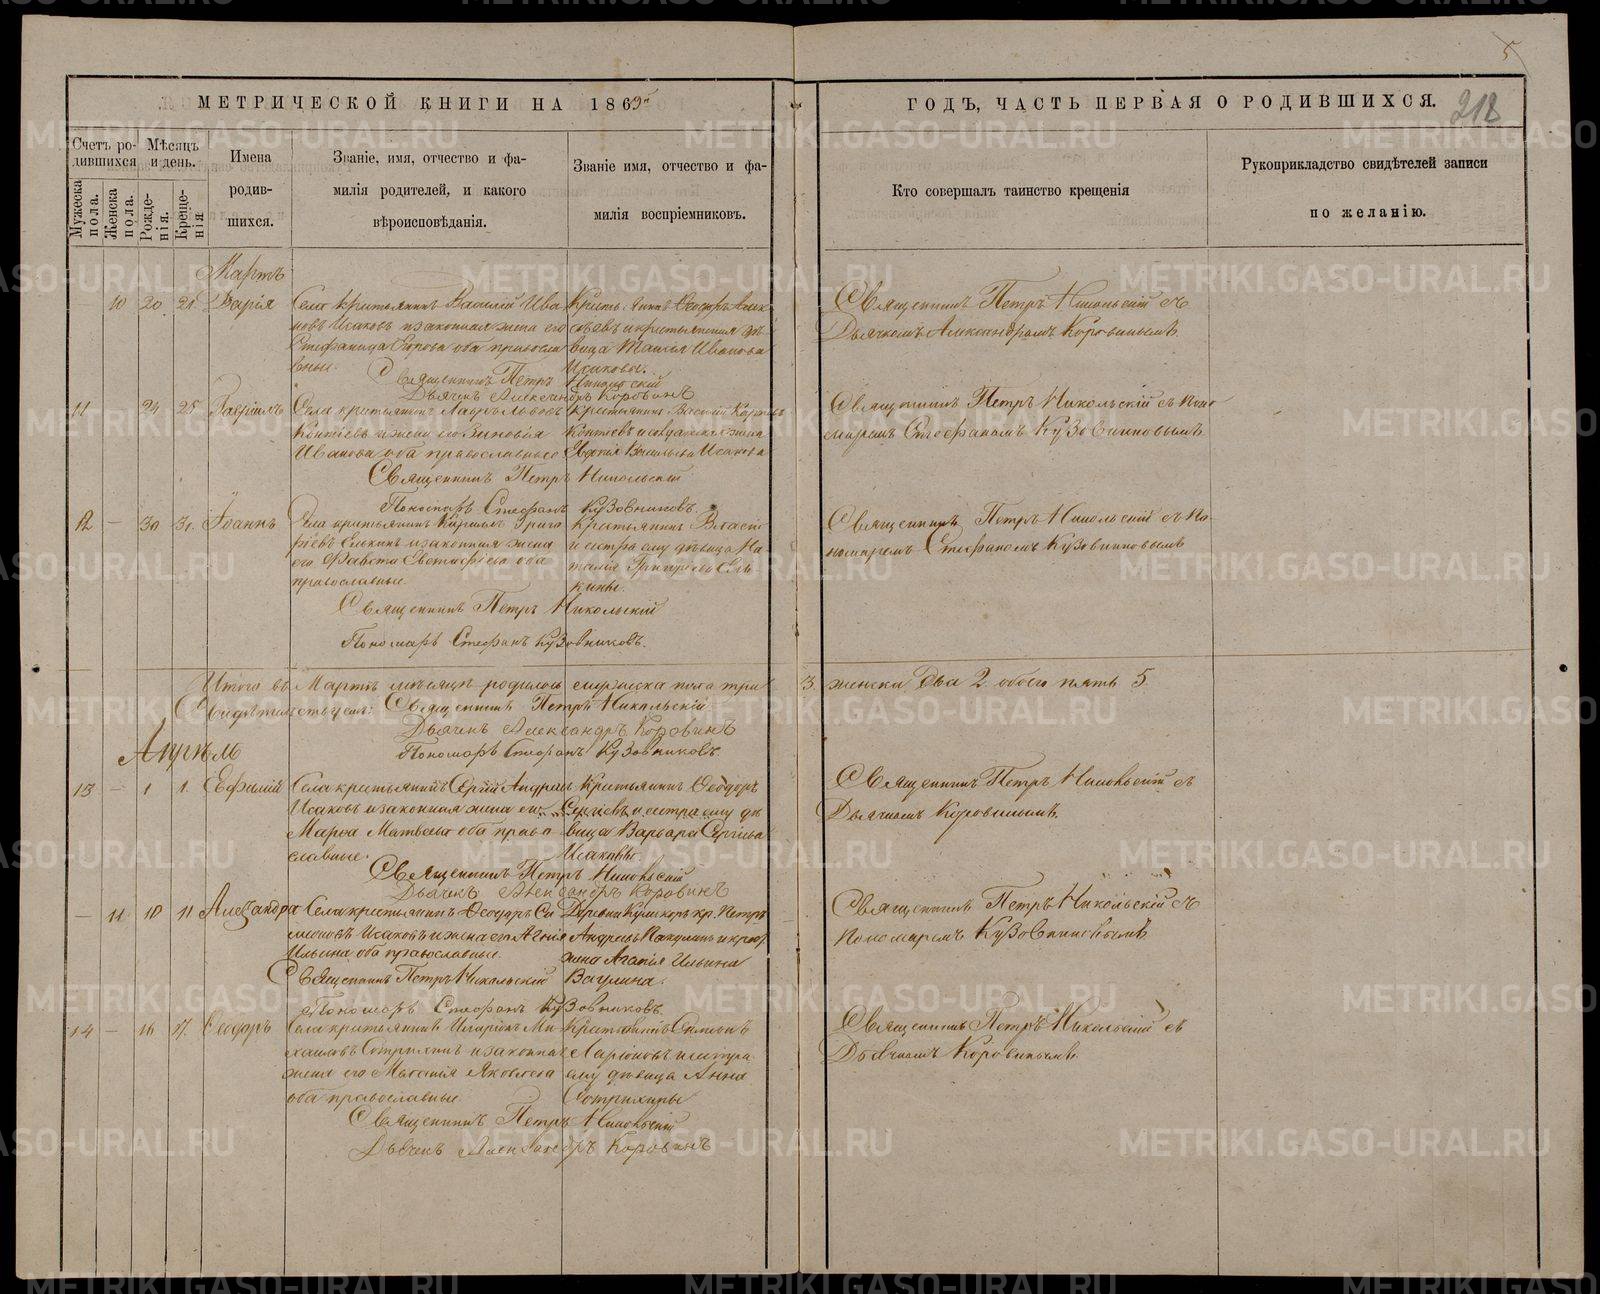 5
МЕТРИЧЕСКОЙ КНИГИ НА 1865й
ГОДЪ, ЧАСТЬ ПЕРВАЯ О РОДИВШИХСЯ.
218
Счетъ ро-
дившихся
Мѣсяцъ
и день.
Мужеска
пола.
Женска
пола.
Рожде-
нія.
Креще-
нія
Имена
родив-
шихся.
Званіе, имя, отчество и фа-
милія родителей, и какого
вѣроисповѣданія.
Званіе имя, отчество и фа-
милія воспріемниковъ.
Кто совершалъ таинство крещенія
Рукоприкладство свидѣтелей записи
по желанію.
Мартъ
10 20 21 Дарія
Села крестьянинъ Василій Ива
новъ Исаковъ и законная жена его
Стефанида Егорова оба правосла
вные.
вица Таисія Иванова
Исакова.
Священникъ Петръ Никольскій
Дьячекъ Александръ Коровинъ
Священникъ Петръ Никольскій съ
Дьячкомъ Александромъ Коровинымъ
11 24 25 Гавріилъ
Села крестьянинъ Лавръ Львовъ
Коптѣевъ и жена его Зиновія
Иванова оба православные
Крестьянинъ Василій
Коптѣевъ и жена
Васильева Исакова
Священникъ Петръ Никольскій
Пономарь Стефанъ Кузовниковъ.
Священникъ Петръ Никольскій съ Поно
маремъ Стефаномъ Кузовниковымъ
12 — 30 31. Іоаннъ
Села крестьянинъ Кирилъ Григо
рьевъ Елькинъ и законная жена
его Фавста Евстафіева оба
православные
Крестьянинъ Власій
и сестра ему дѣвица На
талія Григорьевы Ель
кины.
Священникъ Петръ Никольскій
Пономарь Стефанъ Кузовниковъ.
Священникъ Петръ Никольскій съ По
номаремъ Стефаномъ Кузовниковымъ
Итого въ Мартѣ мѣсяцѣ родилось мужеска пола три 3. женска два 2 обоего пять 5.
Свидѣтельствуемъ: Священникъ Петръ Никольскій
Дьячекъ Александръ Коровинъ
Пономарь Стефанъ Кузовниковъ.
Апрѣль
13 — 1 1. Евфимій
Села крестьянинъ Сергій Андреи
Исаковъ и законная жена его
Марѳа Матвѣева оба право
славные.
Крестьянинъ Ѳеодоръ
Сергіевъ и сестра ему дѣ
вица Варвара Сергіева
Исаковы.
Священникъ Петръ Никольскій
Дьячекъ Александръ Коровинъ
Священникъ Петръ Никольскій съ
Дьячкомъ Коровинымъ.
— 11 10 11 Александра
Села крестьянинъ Ѳеодоръ Си
меоновъ Исаковъ и жена его Агнія
Ильина оба православные.
Петръ
Андреевъ
жена Агапія Ильина
Ваулина.
Священникъ Петръ Никольскій
Пономарь Стефанъ Кузовниковъ.
Священникъ Петръ Никольскій съ
Пономаремъ Кузовниковымъ
14 — 16 17. Ѳеодоръ
Села крестьянинъ Иларіонъ Ми
хаиловъ Сотрихинъ и законная
жена его Яковлева
оба православные.
Крестьянинъ Симеонъ
Ларіоновъ и сестра
ему дѣвица Анна
Сотрихины
Священникъ Петръ Никольскій
Дьячекъ Александръ Коровинъ
Священникъ Петръ Никольскій съ
Дьячкомъ Коровинымъ.
METRIKI.GASO-URAL.RU